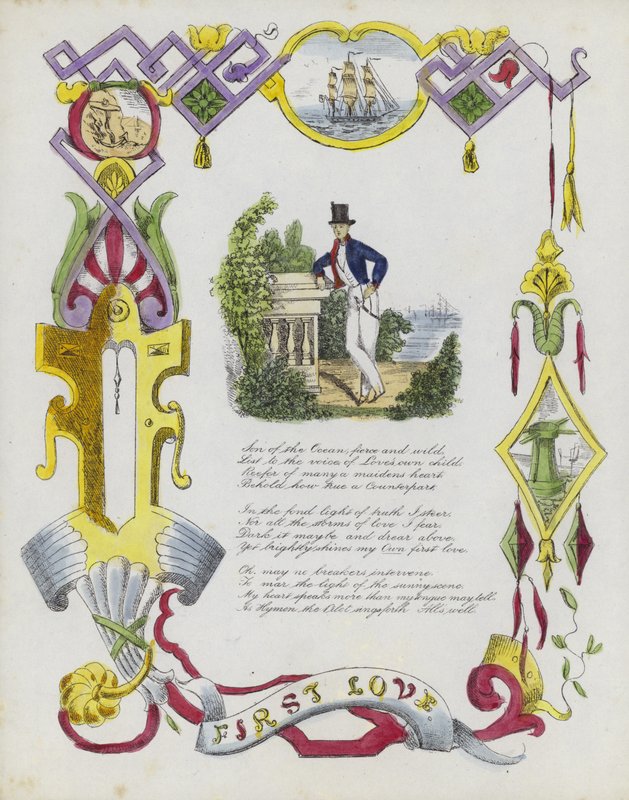 Son of the Ocean, fierce and wild,
List to the voice of Love's own child.
Reefer of many a maidens heart
Behold how true a Counterpart.
In the fond light of truth I steer.
Nor all the storms of love I fear.
Dark it maybe and drear above,
Yet brightly shines my Own first love.
Oh, may no breakers intervene.
To mar the light of the sunny scene.
My heart speaks more than my tongue may tell.
As Hymen the Pilot sings forth All's well.
FIRST LOVE